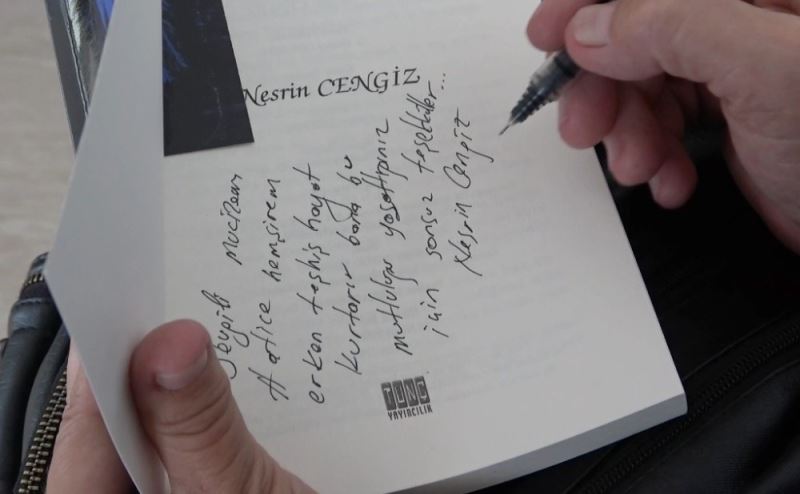 Nesrin CENGİZ
Sevgili mucizem
Hatice hemşirem
erken teşhis hayat
kurtarır bana bu
mutluluğu yaşattığınız
için sonsuz teşekkürler...
Nesrin Cengiz
TUNÇ
YAYINCILIK